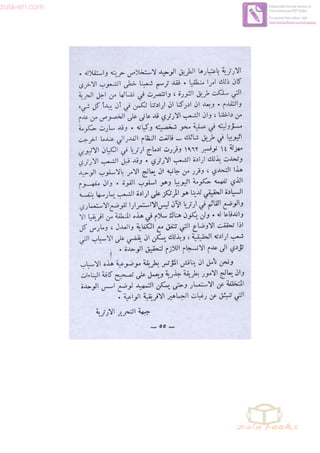 zula-eri.com
الارترية باعتبارها الطريق الوحيد لاستخلاص حريته واستقلاله .
كان ذلك امرا منطقيا . فقد ترسم شعبنا خطى الشعوب الاخرى
التي سلكت طريق الثورة ، وانتصرت في نضالها من اجل الحرية
والتقدم . وبعد ان ادركنا ان ارادتنا تكمن في أن يبدأ كل شيء
من داخلنا ، وان الشعب الارتري قد عانى على الخصوص من عدم
مسؤوليته في عملية محو شخصيته وكيانه . وقد سارت حكومة
اثيوبيا في طريق شائك ــ فألغت النظام الفدرالي عندما اخرجت
مهزلة ١٤ نوفمبر ١٩٦٢ وقررت ادماج ارتريا في الكيان الاثيوبي
وتحدت بذلك ارادة الشعب الارتري . وقد قبل الشعب الارتري
هذا التحدي ، وقرر من جانبه ان يعالج الامر بالاسلوب الوحيد
الذي تفهمه حكومة اثيوبيا وهو اسلوب القوة . وان مفهوم
السيادة الحقيقي لدينا هو المرتكز على ارادة الشعب يمارسها بنفسه
والوضع القائم في ارتريا الآن ليس الا استمرارا للوضع الاستعماري
واندفاعا له . ولن يكون هناك سلام في هذه المنطقة من افريقيا الا
اذا تحققت الاوضاع التي تتفق مع الكفاية والعدل ، ومارس كل
شعب ارادته الحقيقية ، وبذلك يمكن ان يقضي على الاسباب التي
تؤدي الى عدم الانسجام اللازم لتحقيق الوحدة .
ونحن نأمل ان يناقش المؤتمر بطريقة موضوعية هذه الاسباب
وان يعالج الامور بطريقة جذرية ويعمل على تصحيح كافة البناءات
المتخلفة عن الاستعمار وحتى يمكن التمهيد لوضع اسس الوحدة
التي تنبثق عن رغبات الجماهير الافريقية الواعية .
جبهة التحرير الارترية
ــ ٥٥ ــ
zula books